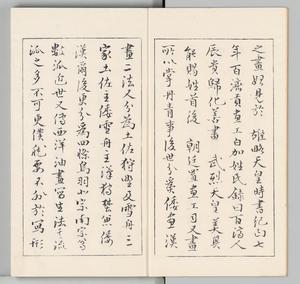 之畫好見於 雄略天皇時書紀曰七
年百濟貢畫工白加姓氏錄曰百濟人
辰貴歸化善畫 武烈天皇美其
能賜姓首後 朝廷置畫工司又畫
所以掌丹青事後世分爲倭畫漢
畫二法人分爲土佐狩野及雪舟三
家土佐主倭雪舟王漢狩野兼倭
漢爾後更分爲四條鳥羽北宗南宗等
數派近世又傳西洋油畫寫生法千流
派之多不可更僕能要不外於寫形